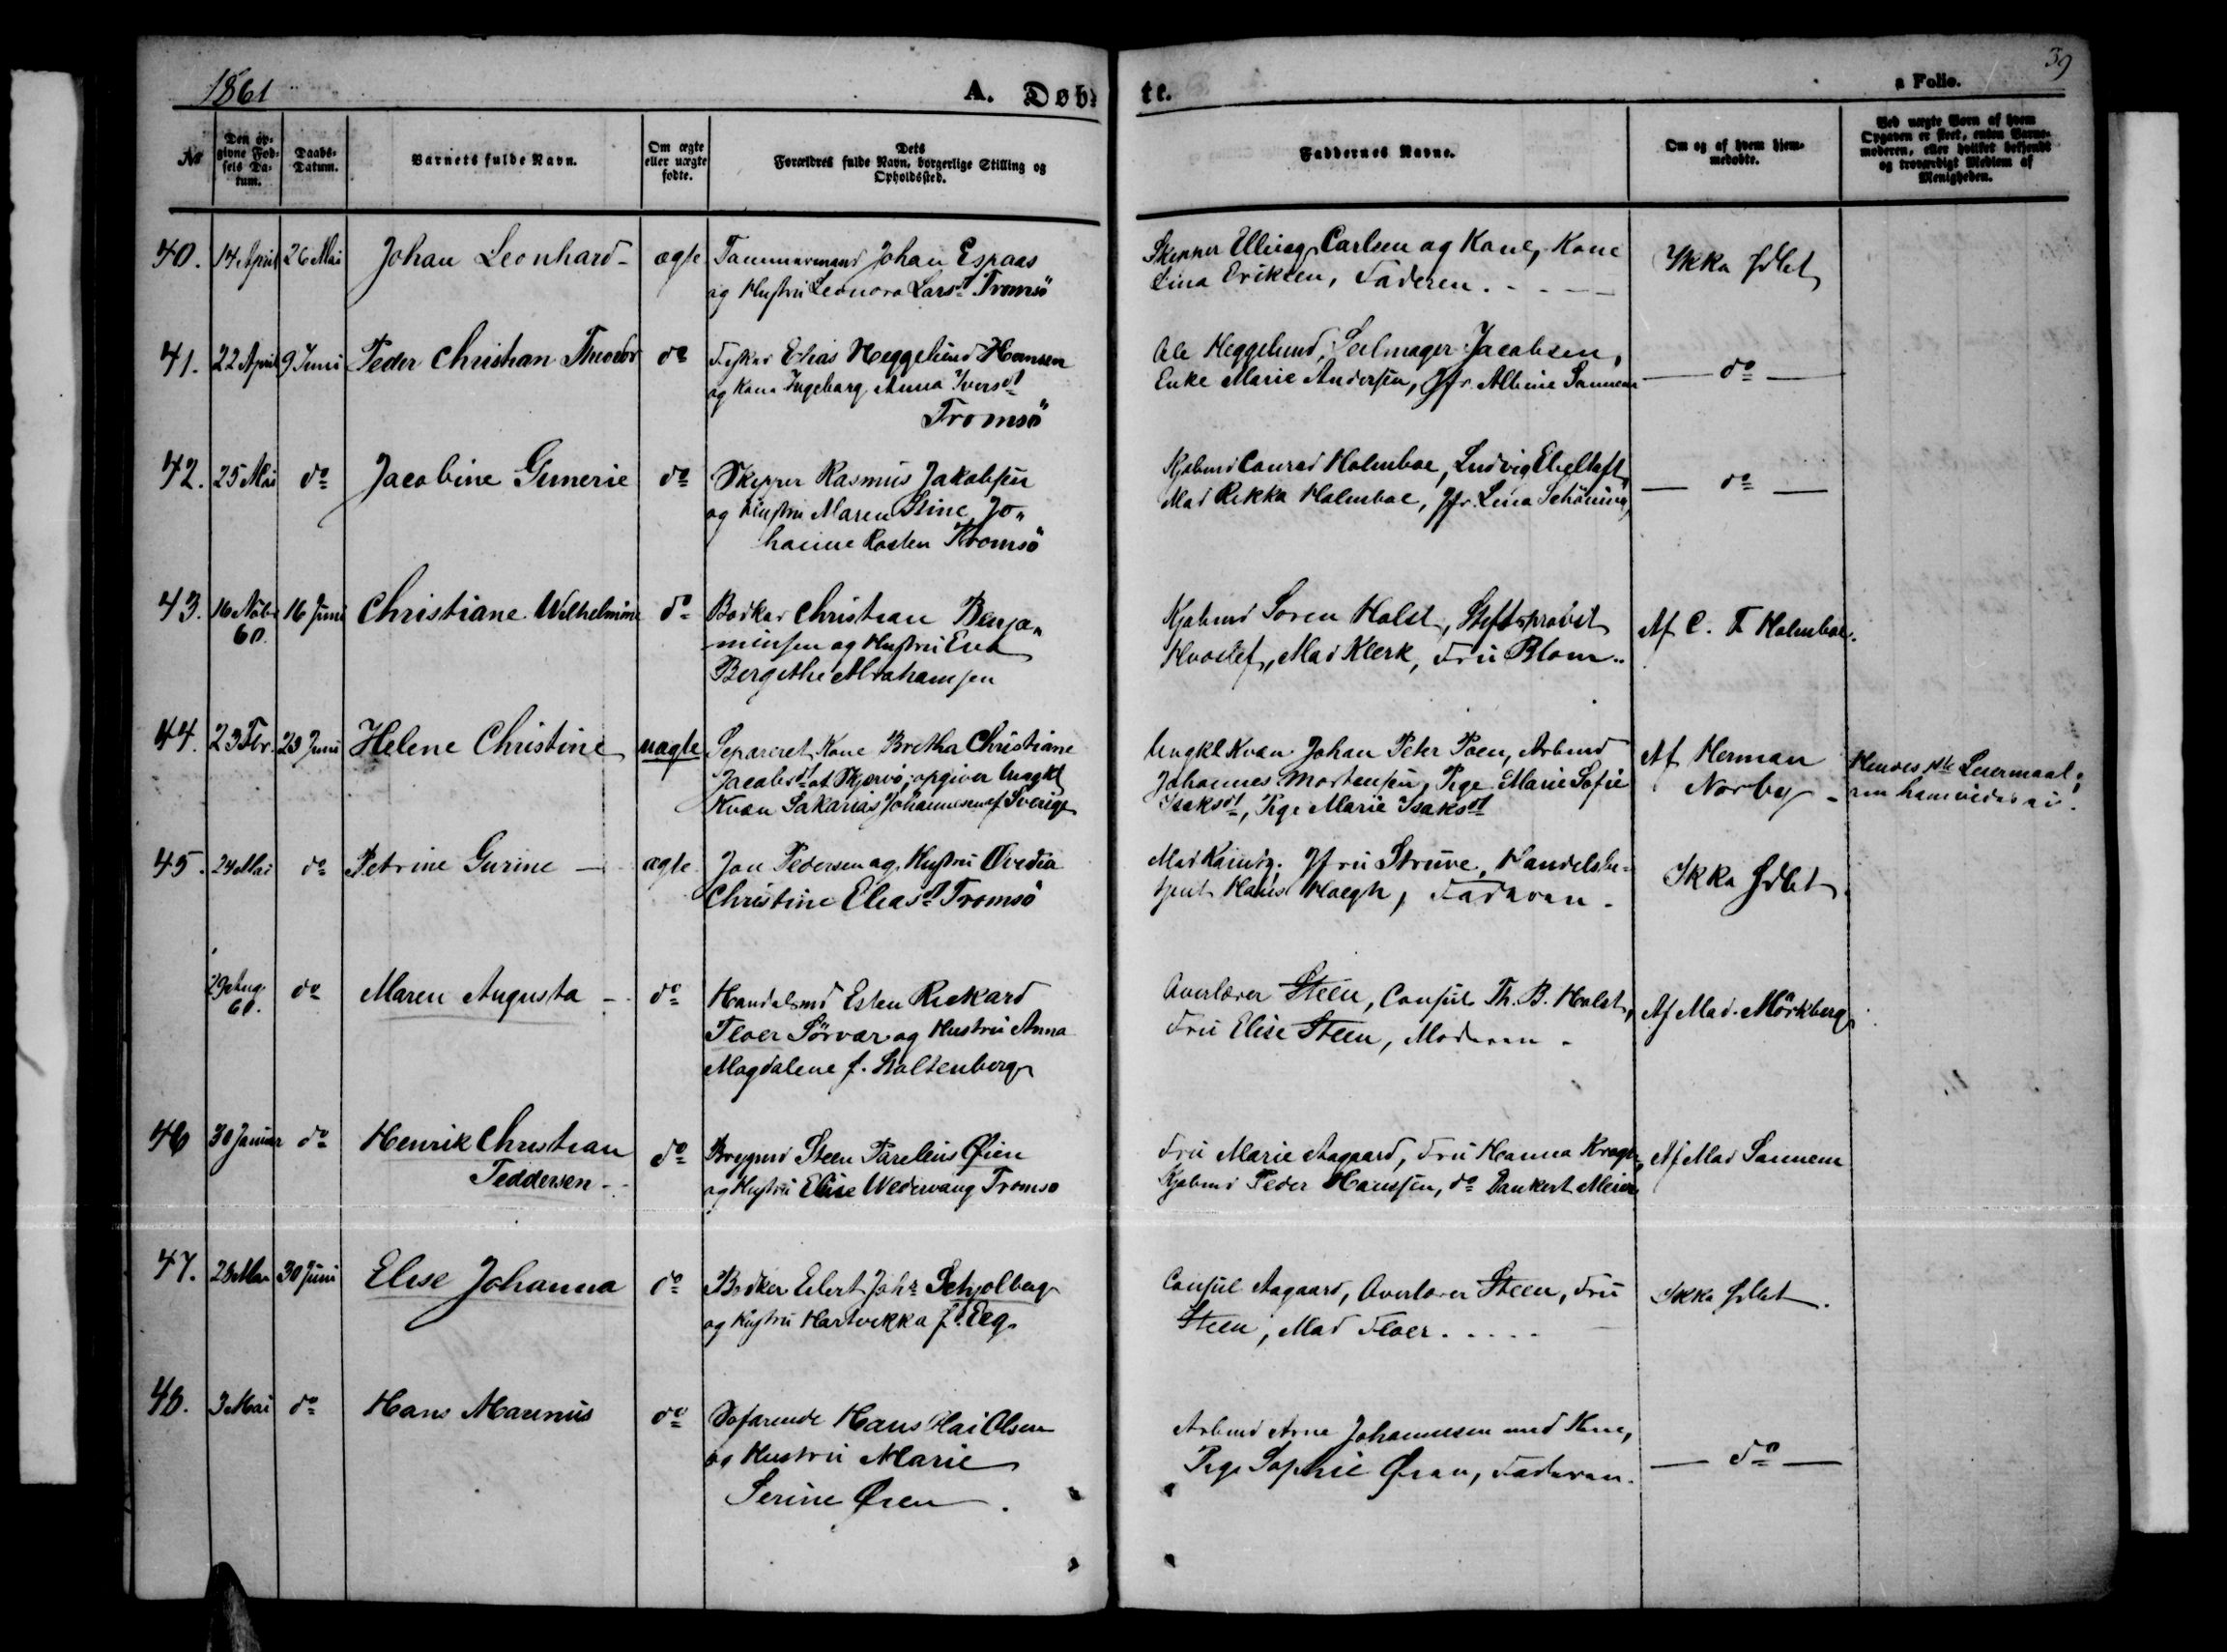 1861
A. Døb-
te.
a Folio.
39
No
Den op-
givne Fød-
sels Da-
tum.
Daabs-
Datum.
Barnets fulde Navn.
Om ægte
eller uægte
fødte.
Dets
Forældres fulde Navn, borgerlige Stilling og
Opholdssted.
Faddernes Navne.
Om og af hvem hjem-
medøbte.
Ved uægte Børn af hvem
Opgaven er skeet, enten Barne-
moderen, eller hvilket bekjendt
og troværdigt Medlem af
Menigheden.
40. 14 April 26 Mai Johan Leonhard - ægte
Tømmermand Johan Espaas
og Hustru Leonora Larsdt Tromsö
Skipper Elling Carlsen og Kone, Kone
Lina Eriksen, Faderen.
Ikke
41. 22 April 9 Juni Peder Christian Theodor do
Fisker Elias Heggelund Hansen
og Kone Ingeborg Anna Iversdt
Tromsö
Ole Heggelund, Seilmager Jacobsen,
Enke Marie Andersen, Jfr. Albine Sannem
do
42. 25 Mai do Jacobine Gunerie do
Skipper Rasmus Jakobsen
og Hustru Maren Stine Jo„
hanne Tromsö
Kjøbmd Conrad Holmboe, Ludvig Ebeltoft
Mad Rikka Holmboe, Jfr. Lina Schöning
do
43. 16 Nobr 60. 16 Juni Christiane Wilhelmine do
Bødker Christian Benja„
minsen og Hustru Eva
Bergithe Abrahamsen
Kjøbmd Søren Holst, Stiftsprovst
Hvoslef, Mad Klerk, Fru Blom..
Af C. F Holmboe.
44. 23 Fbr. 23 Juni Helene Christine uægte
Separeret Kone Bretha Christiane
Jacobsdt af Skjervø; opgiver Ungkl
Kvæn Sakarias Johannesen af Sverige
Ungkl Kvæn Johan Peter Poen, Arbmd
Johannes Mortensen, Pige Marie Sofie
Isaksdt, Pige Marie Isaksdt
Af Herman
Norby -
Hendes Leiermaal;
45. 24 Mai do Petrine Gurine - ægte
Jon Pedersen og Hustru Ovedia
Christine Eliasdt Tromsö
Mad Kaintz. Jfru Struve, Handelsbe-
tjent Hans Høegh, Faderen.
Ikke
29 Aug. 60. do Maren Augusta - do
Handelsmd Esten Rickard
Floer Sörvær og Hustru Anna
Magdalene f. Stoltenberg
Overlærer Steen, Consul Th. B. Holst,
Fru Elise Steen, Moderen.
Af Mad. Mörkberg
46 30 Januar do Henrik Christian do
Teddersen -
Steen Parelius Øien
og Hustru Elise Wedervang Tromsø
Fru Marie Aagaard, Fru Hanna Krogh,
Kjøbmd Peder Hanssen, do Dankert Meier
Af Mad Sannem
47. 28 Mai 30 Juni Elise Johanna do
Bødker Eilert Johs Schjolberg
og Hustru Hartvikka f.
Consul Aagaard, Overlærer Steen, Fru
Steen, Mad Floer.
Ikke
48. 3 Mai do Hans Magnus do
Søfarende Hans Olai Olsen
og Hustru Marie
Serine Øien.
Arbmd Arne Johannesen med Kone,
Pige Sophie Faderen.
do